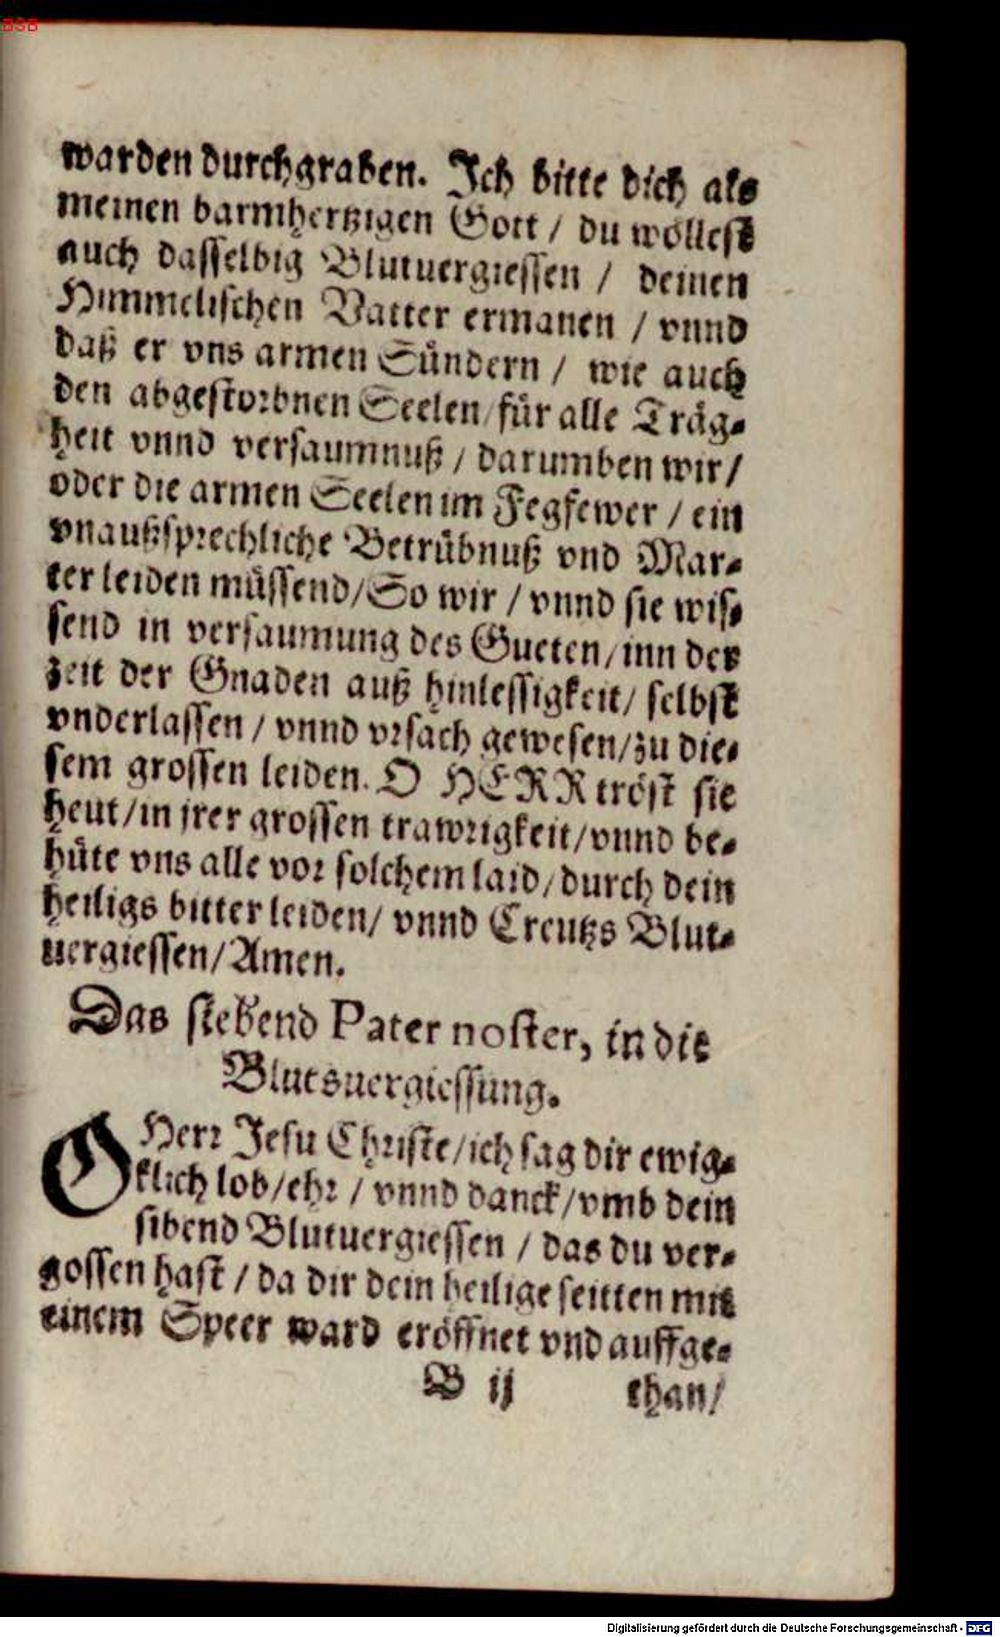 BSB
warden durchgraben. Jch bitte dich als
meinen barmhertzigen Gott / du wöllest
auch dasselbig Blutuergiessen / deinen
Himmelischen Vatter ermanen / vnnd
daß er vns armen Sündern / wie auch
den abgestorbnen Seelen / für alle Träg-
heit vnnd versaumnuß / darumben wir /
oder die armen Seelen im Fegfewer / ein
vnaußsprechliche Betrübnuß vnd Mar-
ter leiden müssend / So wir / vnnd sie wis-
send in versaumung des Gueten / inn der
zeit der Gnaden auß hinlessigkeit / selbst
vnderlassen / vnnd vrsach gewesen / zu die-
sem grossen leiden. O HERR tröst sie
heut / in jrer grossen trawrigkeit / vnnd be-
hüte vns alle vor solchem laid / durch dein
heiligs bitter leiden / vnnd Creutzs Blut-
uergiessen / Amen.
Das siebend Pater noster, in die
Blutsuergiessung.
O Herr Jesu Christe / ich sag dir ewig-
klich lob / ehr / vnnd danck / vmb dein
sibend Blutuergiessen / das du ver-
gossen hast / da dir dein heilige seitten mit
einem Speer ward eröffnet vnd auffge-
B ij than /
Digitalisierung gefördert durch die Deutsche Forschungsgemeinschaft - DFG